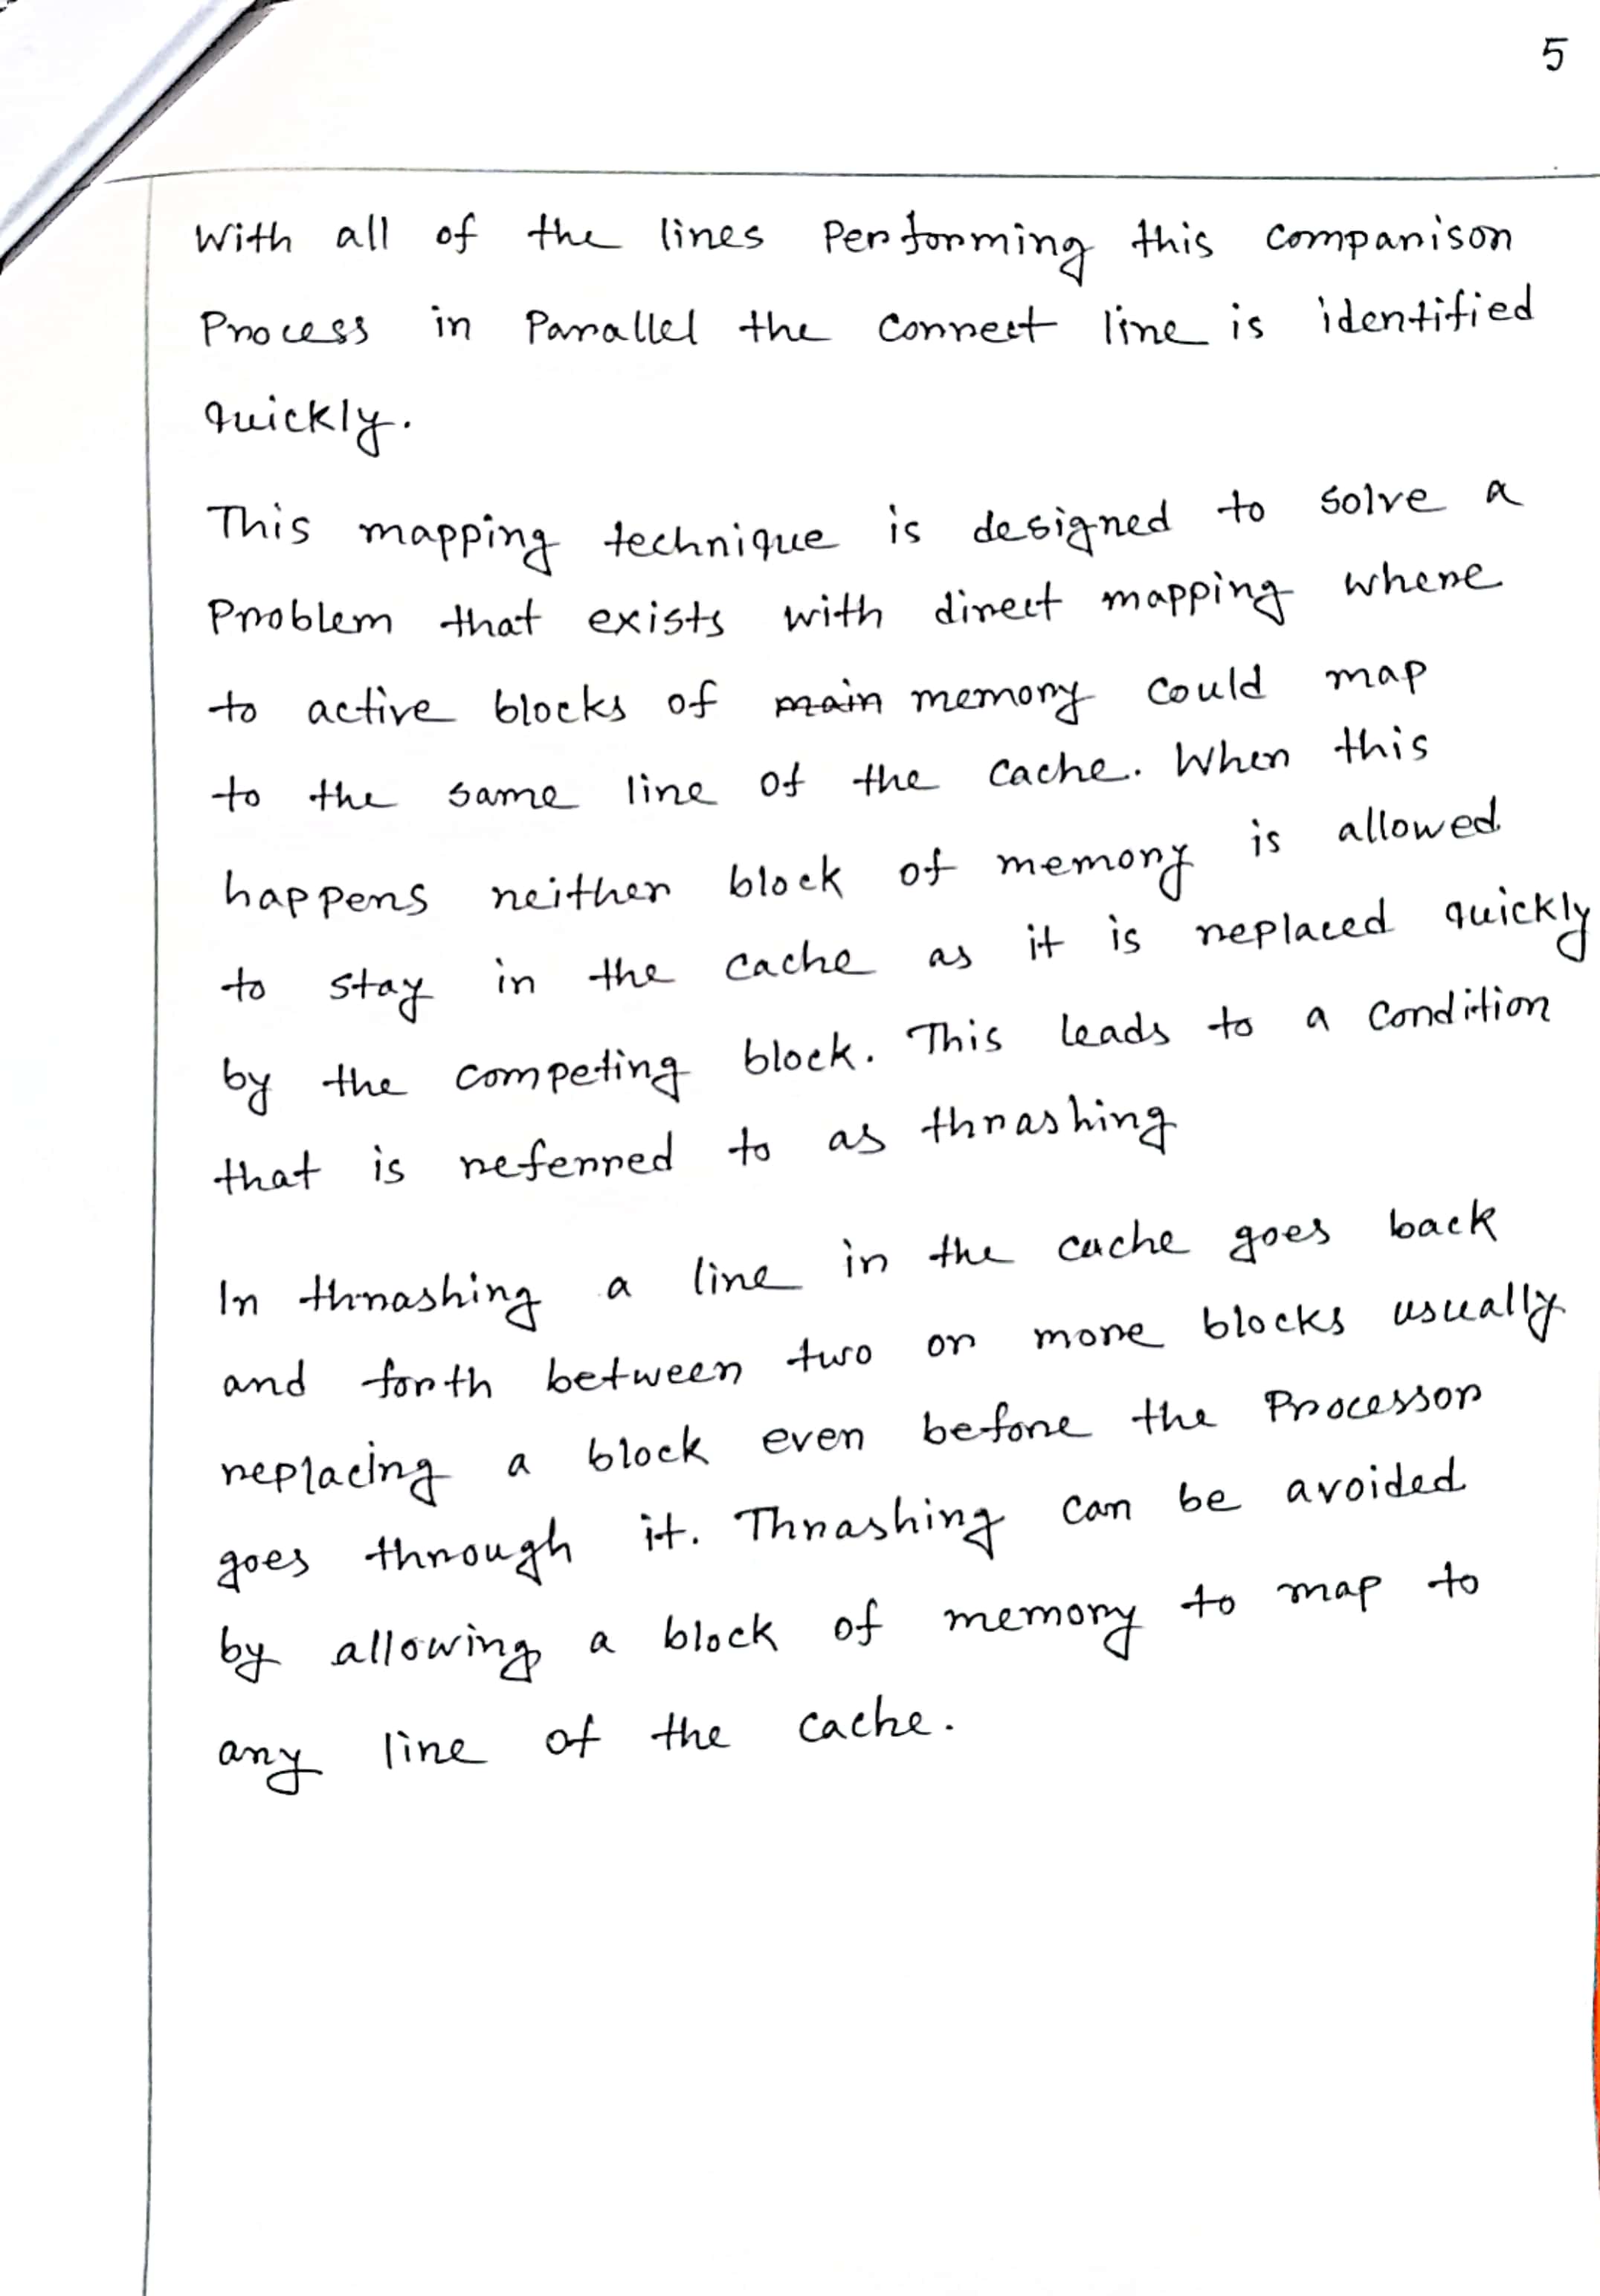 5
With all of the lines Performing this comparison
Process in Parallel the correct line is identified
quickly.
This mapping technique is designed to solve a
Problem that exists with direct mapping where
to active blocks of main memory could map
to the same line of the cache. When this
happens neither block of memory is allowed
to stay in the cache as it is replaced quickly
by the competing block. This leads to a condition
that is referred to as thrashing
In thrashing a line in the cache goes back
and forth between two or more blocks usually
replacing a block even before the Processor
goes through it. Thrashing can be avoided
by allowing a block of memory to map to
any line of the cache.